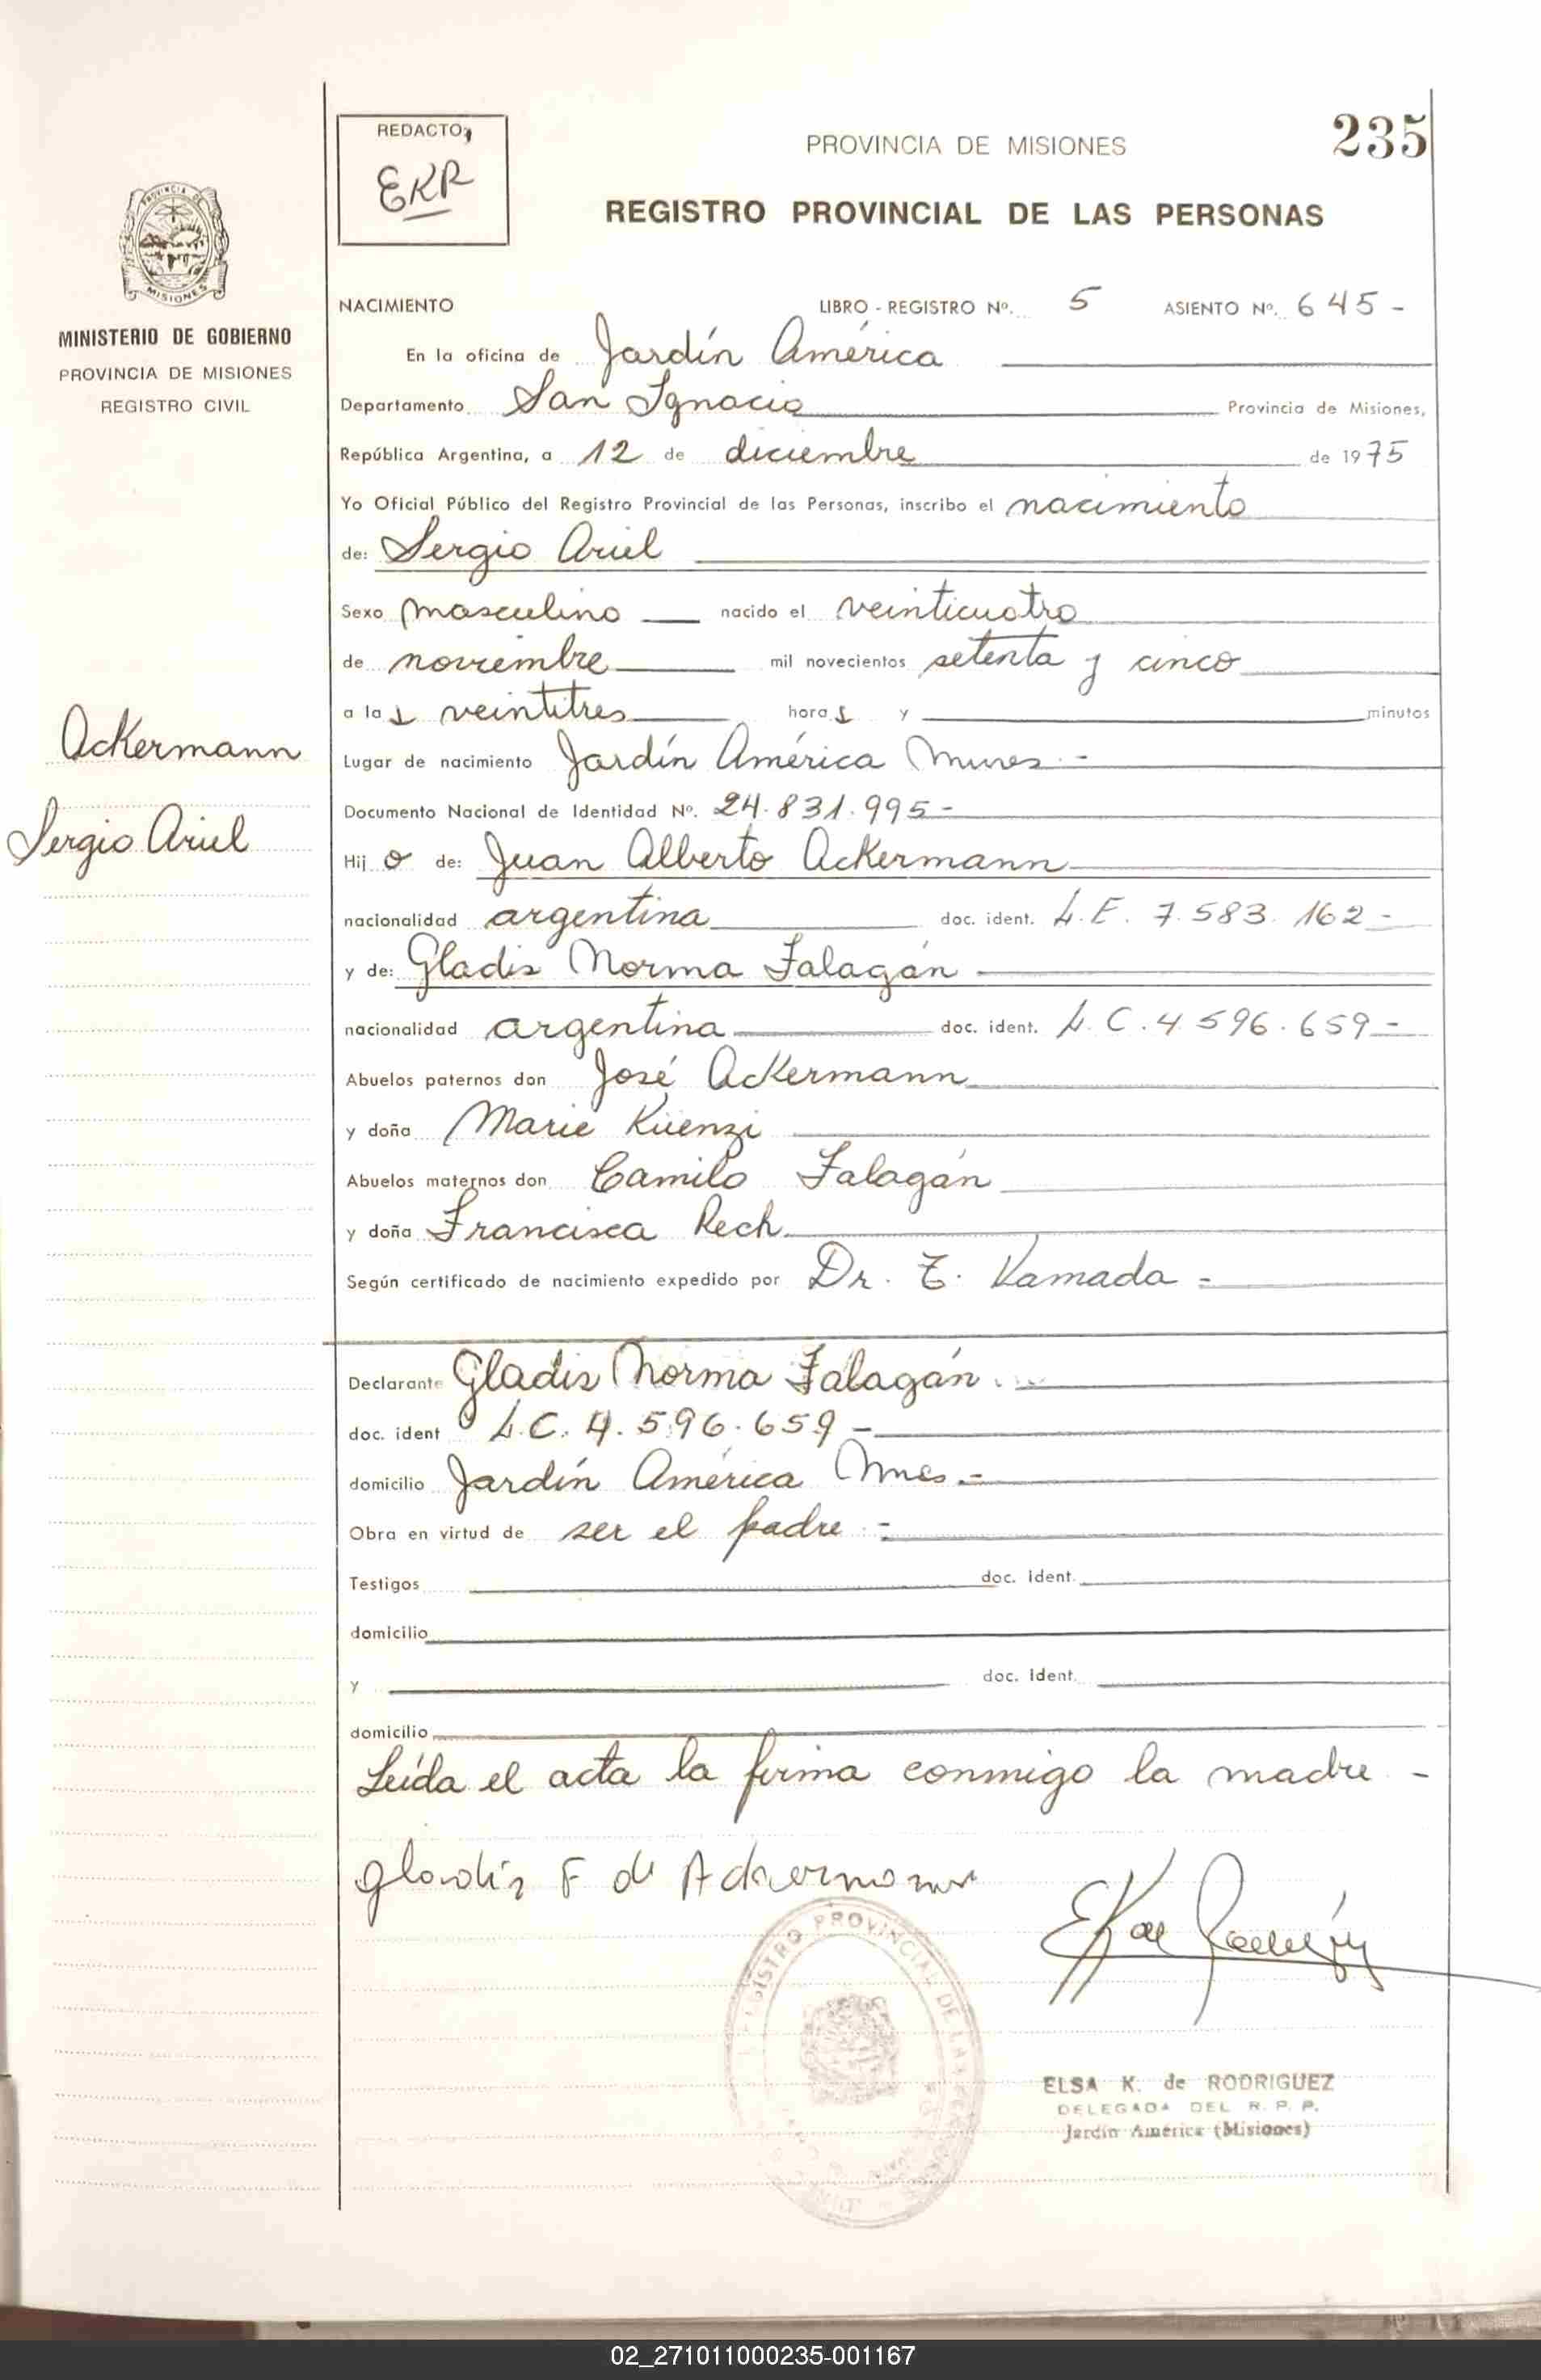 REDACTO,
EKR
PROVINCIA DE MISIONES
235
REGISTRO PROVINCIAL DE LAS PERSONAS
PROVINCIA DE
MISIONES
MINISTERIO DE GOBIERNO
PROVINCIA DE MISIONES
REGISTRO CIVIL
NACIMIENTO LIBRO - REGISTRO Nº. 5 ASIENTO Nº. 645 -
En la oficina de Jardín América
Departamento San Ignacio Provincia de Misiones,
República Argentina, a 12 de diciembre de 1975
Yo Oficial Público del Registro Provincial de las Personas, inscribo el nacimiento
de: Sergio Ariel
Sexo masculino nacido el veinticuatro
de noviembre mil novecientos setenta y cinco
a las veintitres horas y minutos
Ackermann
Sergio Ariel
Lugar de nacimiento Jardín América Mnes. -
Documento Nacional de Identidad Nº. 24.831.995 -
Hijo de: Juan Alberto Ackermann
nacionalidad argentina doc. ident. L.E. 7.583.162 -
y de: Gladis Norma Falagán
nacionalidad argentina doc. ident. L.C. 4.596.659 -
Abuelos paternos don José Ackermann
y doña Marie Küenzi
Abuelos maternos don Camilo Falagán
y doña Francisca Rech
Según certificado de nacimiento expedido por Dr. T. Kamada -
Declarante Gladis Norma Falagán
doc. ident L.C. 4.596.659 -
domicilio Jardín América Mnes. -
Obra en virtud de ser el padre -
Testigos doc. ident.
domicilio
y doc. ident.
domicilio
Leída el acta la firma conmigo la madre -
Gladis F de Ackermann
REGISTRO PROVINCIAL DE LAS PERSONAS
ELSA K. de RODRIGUEZ
DELEGADA DEL R. P. P.
Jardín América (Misiones)
02_271011000235-001167